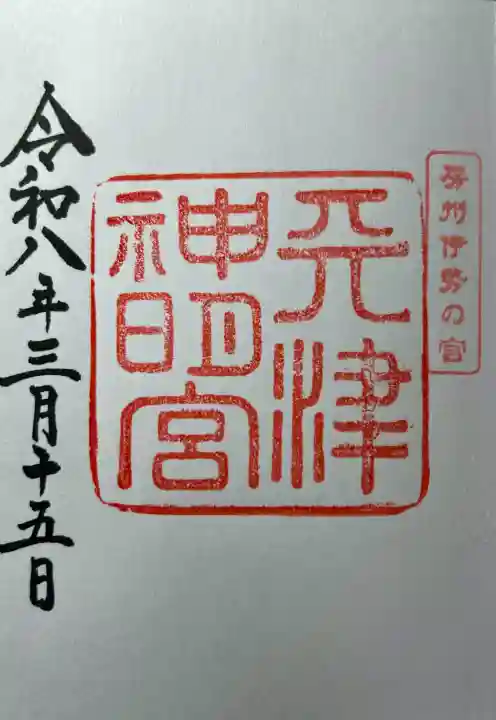 房州伊勢の宮
天津
神明宮
令和八年三月十五日